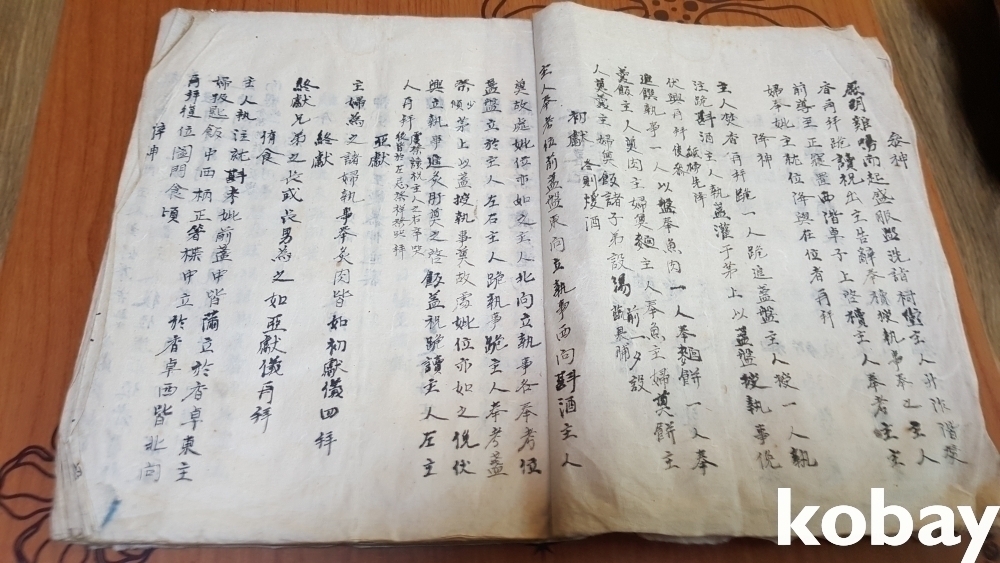 參神
厥明雞鳴而起盛服盥洗詣祠堂主人升阼階焚
香再拜跪讀祝出主告辭奉櫝授執事奉之主人
前導至正寢置西階卓子上啓櫝主人奉考主主
婦奉妣主就位降與在位者再拜
降神
主人焚香再拜跪一人跪進盞盤主人授一人執
注跪斟酒主人執盞灌于茅上以盞盤授執事俛
伏興再拜
進饌執事一人以盤奉魚肉一人奉麵餅一人奉
羹飯主人奠肉主婦奠麵主人奉魚主婦奠餅主
人奠羹主婦奠飯諸子弟設湯
初獻 冬則煖酒
主人奉考位前盞盤東向立執事西向斟酒主人
奠故處妣位亦如之主人北向立執事各奉考位
盞盤立於主人左右主人跪執事跪主人奉考盞
祭少傾茅上以盞授執事奠故處妣位亦如之俛伏
興立執事進炙肝奠之啓飯蓋祝跪讀主人左主
人再拜
亞獻
主婦為之諸婦執事奉炙肉皆如初獻儀四拜
終獻
終獻兄弟之長或長男為之如亞獻儀再拜
侑食
主人執注就斟未妣前盞中皆滿立於香卓東主
婦扱匙飯中西柄正箸楪中立於香卓西皆北向
再拜復位闔門食頃
kobay